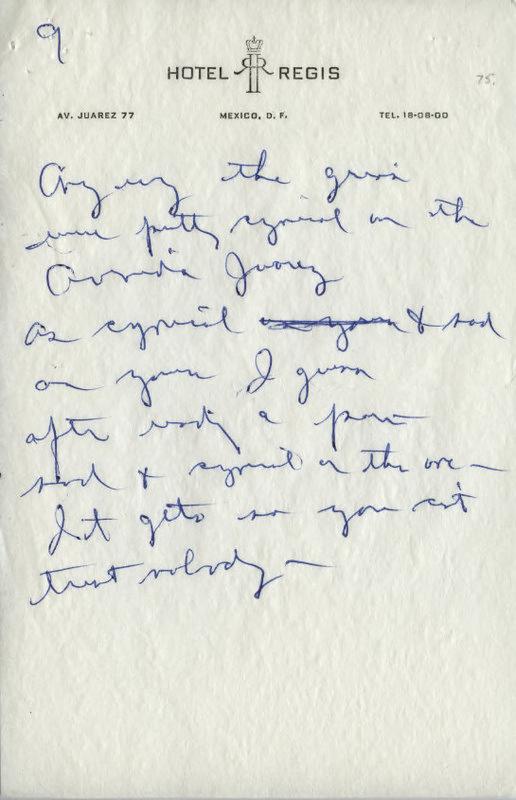 9
HOTEL RR REGIS
75.
AV. JUAREZ 77 MEXICO, D. F. TEL. 18-08-00
Anyway the guns
were pretty cynical on the
Avenida Juarez
as cynical & sad
as yours I guess
after reading a poem
sad & cynical as the one —
It gets so you can't
trust nobody —